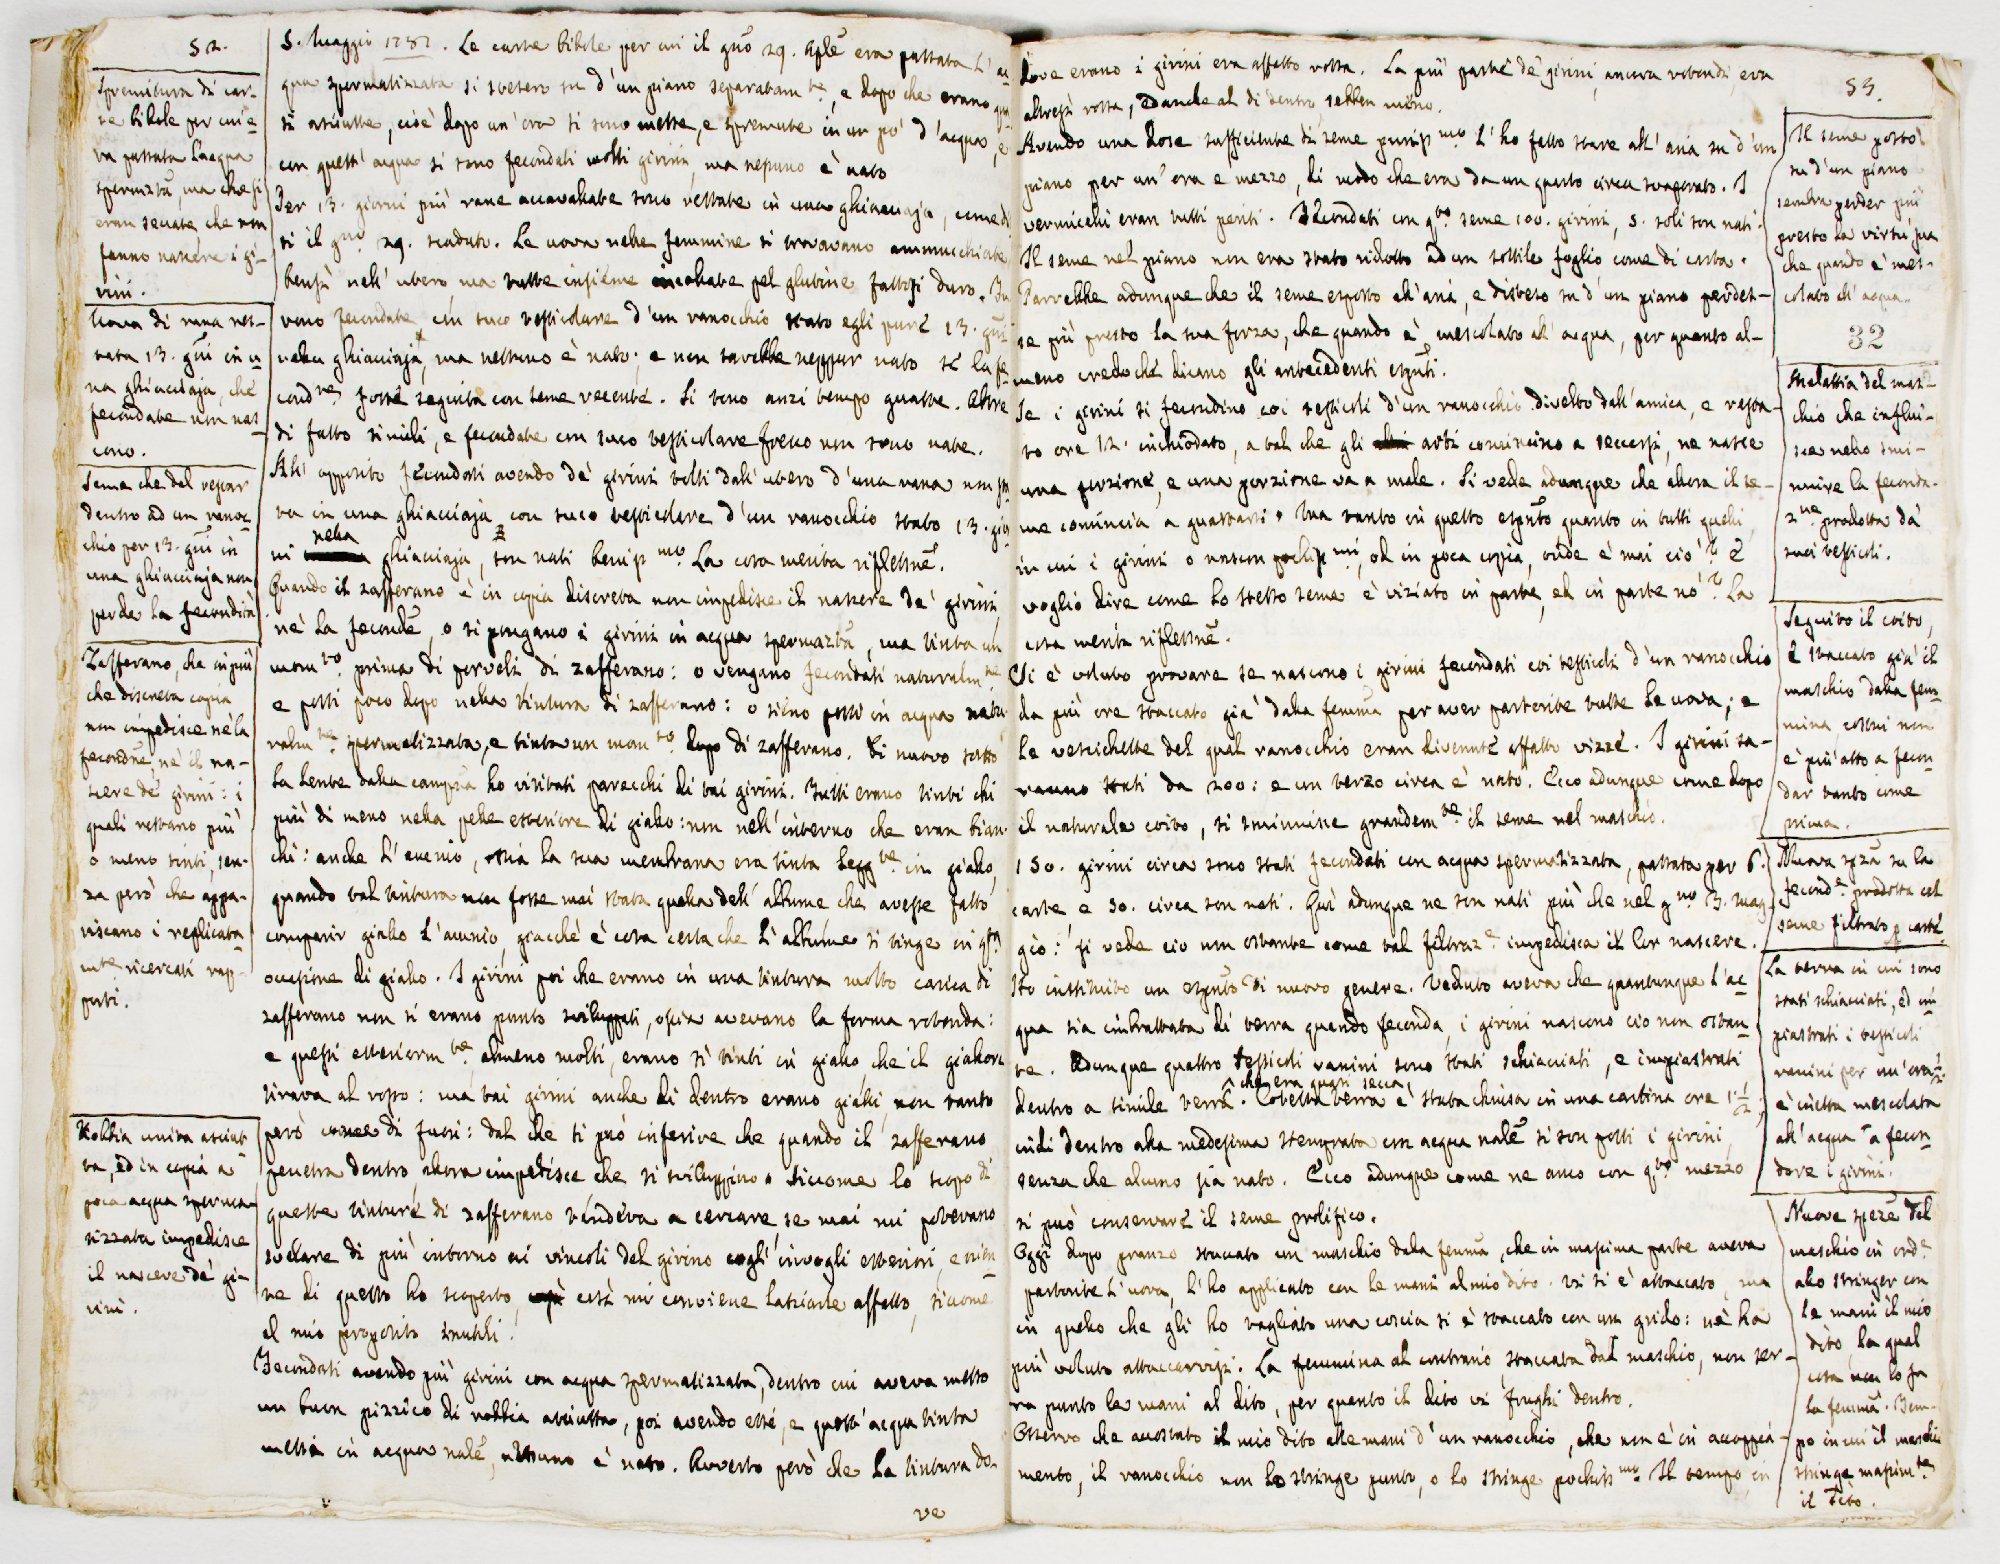 52.
Spremitura di car-
te bibole per cui e-
ra passata l'acqua
spermatizta, ma che si
eran seccate, che non
fanno nascere i gi-
rini.
Uova di rana res-
tata 13. gni in u-
na ghiacciaja, che
fecondate non nas-
cono.
Seme che del restar
dentro ad un ranoc-
chio per 13. gni in
una ghiacciaja non
perde la fecondità
Zafferano, che in più
che discreta copia
non impedisce nè la
fecondne, nè il na-
scere de' girini: i
quali restano più
o meno tinti, sen-
za però che appa-
riscano i replicata
mte ricercati rap-
porti.
Robbia unita asciut-
ta, ed in copia a
poca acqua sperma-
tizzata impedisce
il nascere de' gi-
rini.
5. Maggio 1781. Le carte bibole per cui il gno 29. Aple era passata l'ac-
qua spermatizzata si stesero su d'un piano separatamte, e dopo che erano qua-
si asciutte, cioè dopo un'ora si sono messe, e spremute in un po' d'acqua, e
con quest'acqua si sono fecondati molti girini, ma nessuno è nato
Per 13. giorni più rane accavalcate sono restate in una ghiacciaja, come dis-
si il gno 29. scaduto. Le uova nelle femmine si trovavano ammucchiate
bensì nell'utero ma tutte insieme incollate pel glutine fattosi duro. Fu-
rono fecondate con suco testicolare d'un ranocchio stato egli pure 13. gni
nella ghiacciaja, ma nessuno è nato; e non sarebbe neppur nato se la fe-
condne fosse seguita con seme recente. Si sono anzi tempo guaste. Altre
di fatto simili, e fecondate con suco testicolare fresco non sono nate.
All'opposito fecondati avendo de' girini tolti dall'utero d'una rana non sta-
ta in una ghiacciaja con suco testicolare d'un ranocchio stato 13. gior-
ni nella ghiacciaja, son nati benissmo. La cosa merita riflessne.
Quando il zafferano è in copia discreta non impedisce il nascere de' girini,
nè la feconde, o si pongano i girini in acqua spermazta, ma tinta un
momto prima di porveli di zafferano: o vengano fecondati naturalmte
e posti poco dopo nella tintura di zafferano: o sieno posti in acqua natu-
ralmte spermatizzata, e tinta un momto dopo di zafferano. Di nuovo sotto
la lente dalla campna ho visitati parecchi di tai girini. Tutti erano tinti chi
più di meno nella pelle esteriore di giallo: non nell'interno che eran bian-
chi: anche l'amnio, ossia la sua membrana era tinta leggte in giallo,
quando tal tintura non fosse mai stata quella dell'albume che avesse fatto
comparir giallo l'amnio, giacchè è cosa certa che l'albume si tinge in qsta
occasione di giallo. I girini poi che erano in una tintura molto carica di
zafferano non si erano punto sviluppati, ossia avevano la forma rotonda:
e questi esteriormte almeno molti, erano sì tinti in giallo che il giallore
tirava al rosso: ma tai girini anche di dentro erano gialli, non tanto
però come di fuori: dal che si può inferire che quando il zafferano
penetra dentro allora impedisce che si sviluppino. Siccome lo scopo di
queste tinture di zafferano tendeva a cercare se mai mi potevano
svelare di più intorno ai vincoli del girino cogl'invogli esteriori, e nien-
te di questo ho scoperto, così mi conviene lasciarle affatto, siccome
al mio proposito inutili.
Fecondati avendo più girini con acqua spermatizzata, dentro cui aveva messo
un buon pizzico di robbia asciutta, poi avendo essi, e quest'acqua tinta
messa in acqua nale, nessuno è nato. Avverto però che la tintura do-
ve
dove erano i girini era affatto rossa. La più parte de' girini, ancora rotondi, era
altresì rossa, ed anche al di dentro, sebben meno.
Avendo una dose sufficiente di seme purissmo l'ho fatto stare all'aria su d'un
piano per un'ora e mezzo, di modo che era da un quarto circa svaporato. I
vermicelli eran tutti periti. Fecondati con qto seme 100. girini, 5. soli son nati.
Il seme nel piano non era stato ridotto ad un sottile foglio come di carta.
Parrebbe adunque che il seme esposto all'aria, e disteso su d'un piano perdes-
se più presto la sua forza, che quando è mescolato all'acqua, per quanto al-
meno credo che dicano gli antecedenti espnti.
Se i girini si fecondino coi testicoli d'un ranocchio divelto dall'amica, e resta-
to ore 12. inchiodato, a tal che gli arti comincino a seccarsi, ne nasce
una porzione, e una porzione va a male. Si vede adunque che allora il se-
me comincia a guastarsi. Ma tanto in questo espnto quanto in tutti quelli,
in cui i girini o nascon pochissmi, od in poca copia, onde è mai ciò? E
voglio dire come lo stesso seme è viziato in parte, ed in parte nò? La
cosa merita riflessne.
Si è voluto provare se nascono i girini fecondati coi testicoli d'un ranocchio
da più ore staccato già dalla femma per aver partorite tutte le uova; e
le vescichette del qual ranocchio eran divenute affatto vizze. I girini sa-
ranno stati da 200: e un terzo circa è nato. Ecco adunque come dopo
il naturale coito, si sminuisce grandemte il seme nel maschio.
150. girini circa sono stati fecondati con acqua spermatizzata, passata per 6.
carte e 50. circa son nati. Quì adunque ne son nati più che nel gno 3. Mag-
gio: si vede ciò non ostante come tal filtraze impedisca il lor nascere.
Ho instituito un espnto di nuovo genere. Veduto aveva che quantunque l'ac-
qua sia imbrattata di terra quando feconda, i girini nascono ciò non ostan-
te. Adunque quattro testicoli ranini sono stati schiacciati, e impiastrati
dentro a simile terra che era quasi secca. Cotesta terra è stata chiusa in una cartina ore 1 1/2;
indi dentro alla medesima stemprata con acqua nale si son posti i girini
senza che alcuno sia nato. Ecco adunque come ne anco con qto mezzo
si può conservare il seme prolifico.
Oggi dopo pranzo staccato un maschio dalla femma, che in massima parte aveva
partorite l'uova, l'ho applicato con le mani al mio dito. Vi si è attaccato, ma
in quello che gli ho tagliato una coscia si è staccato con un grido: nè ha
più voluto attaccarvisi. La femmina al contrario staccata dal maschio, non ser-
ra punto le mani al dito, per quanto il dito vi frughi dentro.
Osservo che accostato il mio dito alle mani d'un ranocchio, che non è in accoppia-
mento, il ranocchio non lo stringe punto, o lo stringe pochissmo. Il tempo, in
53.
Il seme posto
su d'un piano
sembra perder più
presto la virtù sua
che quando è mes-
colato all'acqua.
32
Malattia del mas-
chio che influi-
sce nello smi-
nuire la feconda-
zne prodotta da'
suoi testicoli.
Seguito il coito,
e staccato già il
maschio dalla fem-
mina costui non
è più atto a fecon-
dar tanto come
prima.
Nuova spza su la
feconde prodotta col
seme filtrato p carte.
La terra in cui sono
stati schiacciati, ed im-
piastrati i testicoli
ranini per un'ora 1/2
è inetta mescolata
all'acqua a fecon-
dare i girini.
Nuove speze del
maschio in orde
allo stringer con
le mani il mio
dito, la qual
cosa non lo fa
la femma. Tem-
po in cui il maschio
stringe massimte
il dito.